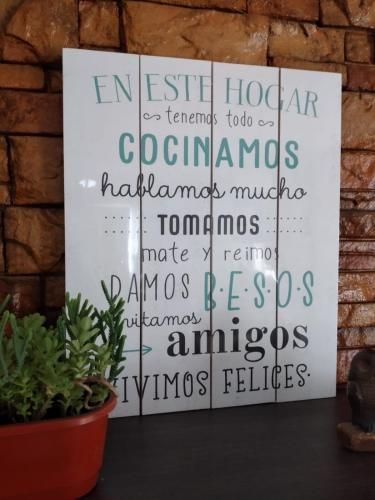 EN ESTE HOGAR
tenemos todo
COCINAMOS
hablamos mucho
TOMAMOS
mate y reimos
DAMOS B·E·S·O·S
amigos
VIVIMOS FELICES·